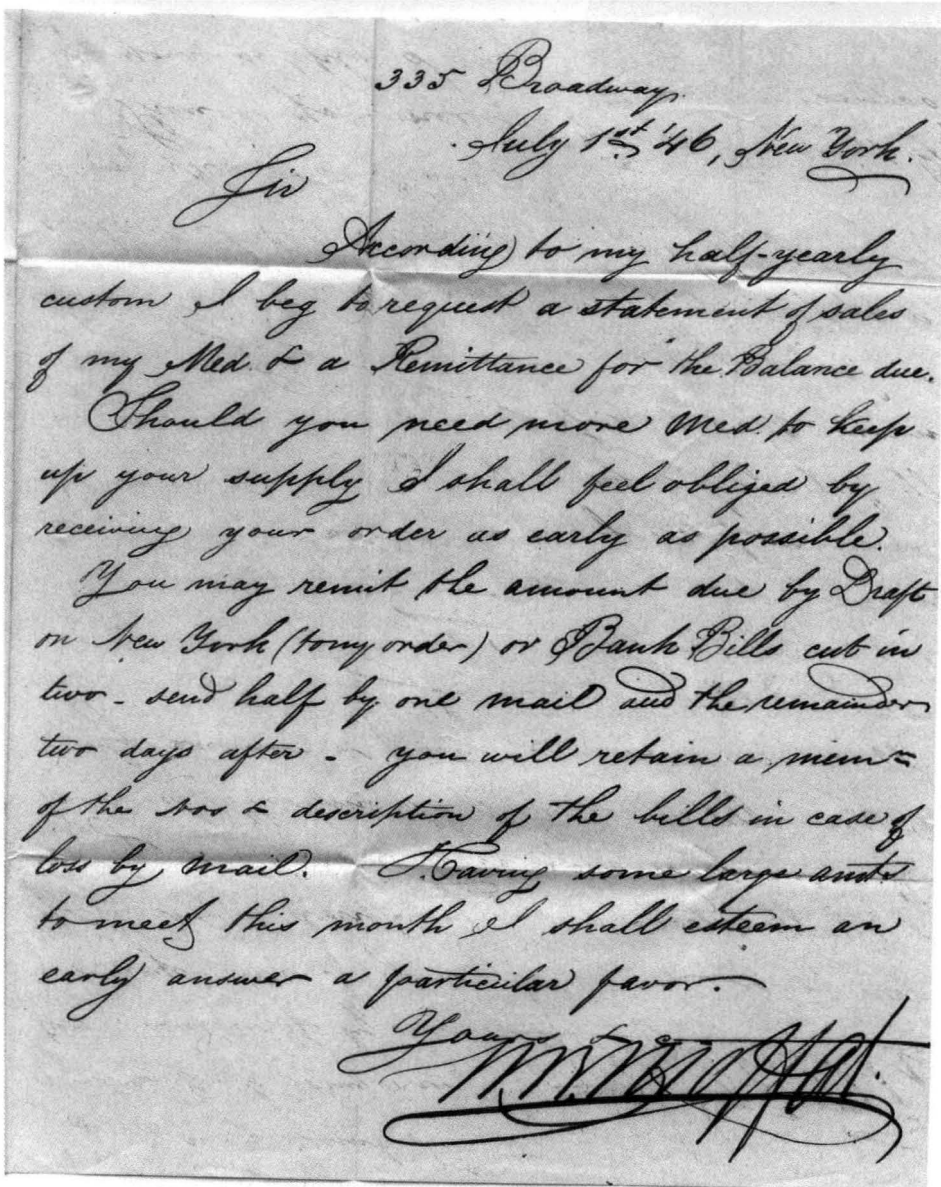 335 Broadway
July 1st '46, New York.
Sir
According to my half-yearly
custom I beg to request a statement of sales
of my Med. & a Remittance for the Balance due.
Should you need more Med. to keep
up your supply I shall feel obliged by
receiving your order as early as possible.
You may remit the amount due by Draft
on New York (to my order) or Bank Bills cut in
two - send half by one mail and the remainder
two days after - you will retain a mem
of the nos & description of the bills in case of
loss by mail. Having some large amts
to meet this month I shall esteem an
early answer a particular favor.
Yours &c
Moffat.